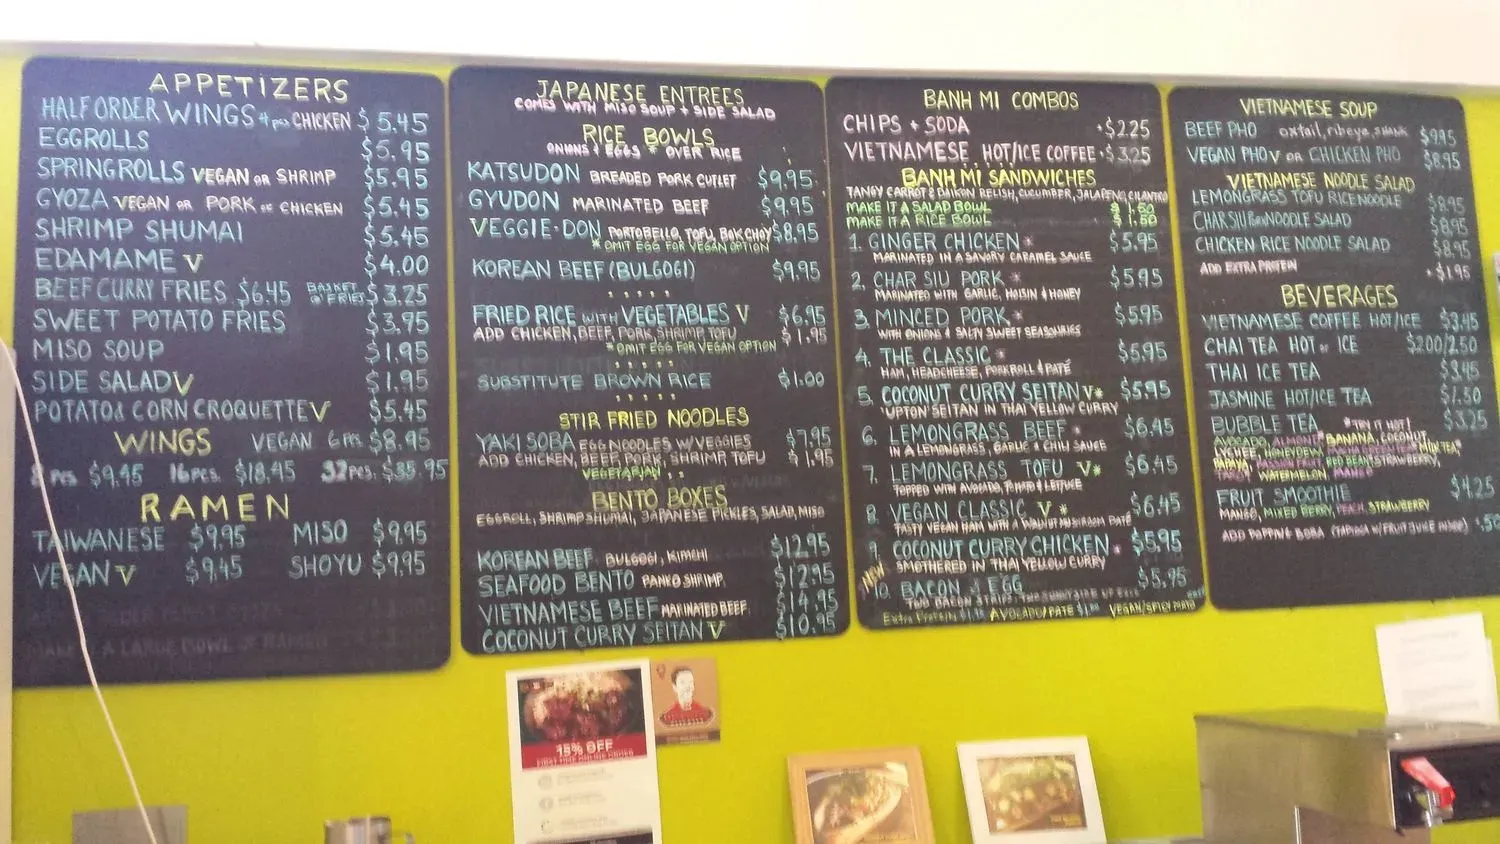 APPETIZERS
HALF ORDER WINGS 4 pcs CHICKEN $5.45
EGGROLLS $5.95
SPRINGROLLS VEGAN OR SHRIMP $5.95
GYOZA VEGAN OR PORK OR CHICKEN $5.45
SHRIMP SHUMAI $5.45
EDAMAME V $4.00
BEEF CURRY FRIES $6.45 BASKET OF FRIES $3.25
SWEET POTATO FRIES $3.95
MISO SOUP $1.95
SIDE SALAD V $1.95
POTATO & CORN CROQUETTE V $5.45
WINGS VEGAN 6 pcs $8.95
8 pcs $9.45 16 pcs. $18.45 32 pcs. $35.95
RAMEN
TAIWANESE $9.95 MISO $9.95
VEGAN V $9.45 SHOYU $9.95
JAPANESE ENTREES
COMES WITH MISO SOUP + SIDE SALAD
RICE BOWLS
ONIONS & EGGS * OVER RICE
KATSUDON BREADED PORK CUTLET $9.95
GYUDON MARINATED BEEF $9.95
VEGGIE-DON PORTOBELLO, TOFU, BOK CHOY $8.95
* OMIT EGG FOR VEGAN OPTION
KOREAN BEEF (BULGOGI) $9.95
FRIED RICE WITH VEGETABLES V $6.95
ADD CHICKEN, BEEF, PORK, SHRIMP, TOFU $1.95
* OMIT EGG FOR VEGAN OPTION
SUBSTITUTE BROWN RICE $1.00
STIR FRIED NOODLES
YAKI SOBA EGG NOODLES W/ VEGGIES $7.95
ADD CHICKEN, BEEF, PORK, SHRIMP, TOFU $1.95
VEGETARIAN
BENTO BOXES
EGGROLL, SHRIMP SHUMAI, JAPANESE PICKLES, SALAD, MISO
KOREAN BEEF BULGOGI, KIMCHI $12.95
SEAFOOD BENTO PANKO SHRIMP $12.95
VIETNAMESE BEEF MARINATED BEEF $14.95
COCONUT CURRY SEITAN V $10.95
BANH MI COMBOS
CHIPS + SODA +$2.25
VIETNAMESE HOT/ICE COFFEE +$3.25
BANH MI SANDWICHES
TANGY CARROT & DAIKON RELISH, CUCUMBER, JALAPENO, CILANTRO
MAKE IT A SALAD BOWL $1.50
MAKE IT A RICE BOWL $1.50
1. GINGER CHICKEN * $5.95
MARINATED IN A SAVORY CARAMEL SAUCE
2. CHAR SIU PORK * $5.95
MARINATED WITH GARLIC, HOISIN & HONEY
3. MINCED PORK * $5.95
WITH ONIONS & SALTY SWEET SEASONINGS
4. THE CLASSIC * $5.95
HAM, HEADCHEESE, PORKROLL & PATÉ
5. COCONUT CURRY SEITAN V* $5.95
UPTON SEITAN IN THAI YELLOW CURRY
6. LEMONGRASS BEEF * $6.45
IN A LEMONGRASS, GARLIC & CHILI SAUCE
7. LEMONGRASS TOFU V* $6.45
TOPPED WITH AVOCADO, TOMATO & LETTUCE
8. VEGAN CLASSIC V * $6.45
TASTY VEGAN HAM WITH A WALNUT MUSHROOM PATÉ
9. COCONUT CURRY CHICKEN * $5.95
SMOTHERED IN THAI YELLOW CURRY
NEW 10. BACON & EGG $5.95
TWO BACON STRIPS, TWO SUNNYSIDE UP EGGS
Extra Protein AVOCADO/PATÉ VEGAN/SPICY MAYO
VIETNAMESE SOUP
BEEF PHO oxtail, ribeye, shank $9.95
VEGAN PHO V OR CHICKEN PHO $8.95
VIETNAMESE NOODLE SALAD
LEMONGRASS TOFU RICE NOODLE $8.95
CHAR SIU PORK NOODLE SALAD $8.95
CHICKEN RICE NOODLE SALAD $8.95
ADD EXTRA PROTEIN +$1.95
BEVERAGES
VIETNAMESE COFFEE HOT/ICE $3.45
CHAI TEA HOT or ICE $2.00/2.50
THAI ICE TEA $3.45
JASMINE HOT/ICE TEA $1.50
BUBBLE TEA *TRY IT HOT! $3.25
AVOCADO, ALMOND, BANANA, COCONUT,
LYCHEE, HONEYDEW, MILK TEA,
PAPAYA, PASSION FRUIT, RED BEAN, STRAWBERRY,
TARO, WATERMELON, MANGO
FRUIT SMOOTHIE $4.25
MANGO, MIXED BERRY, PEACH, STRAWBERRY
ADD POPPING BOBA (TAPIOCA W/ FRUIT JUICE INSIDE) +.50
15% OFF
FIRST TIME ONLINE ORDER